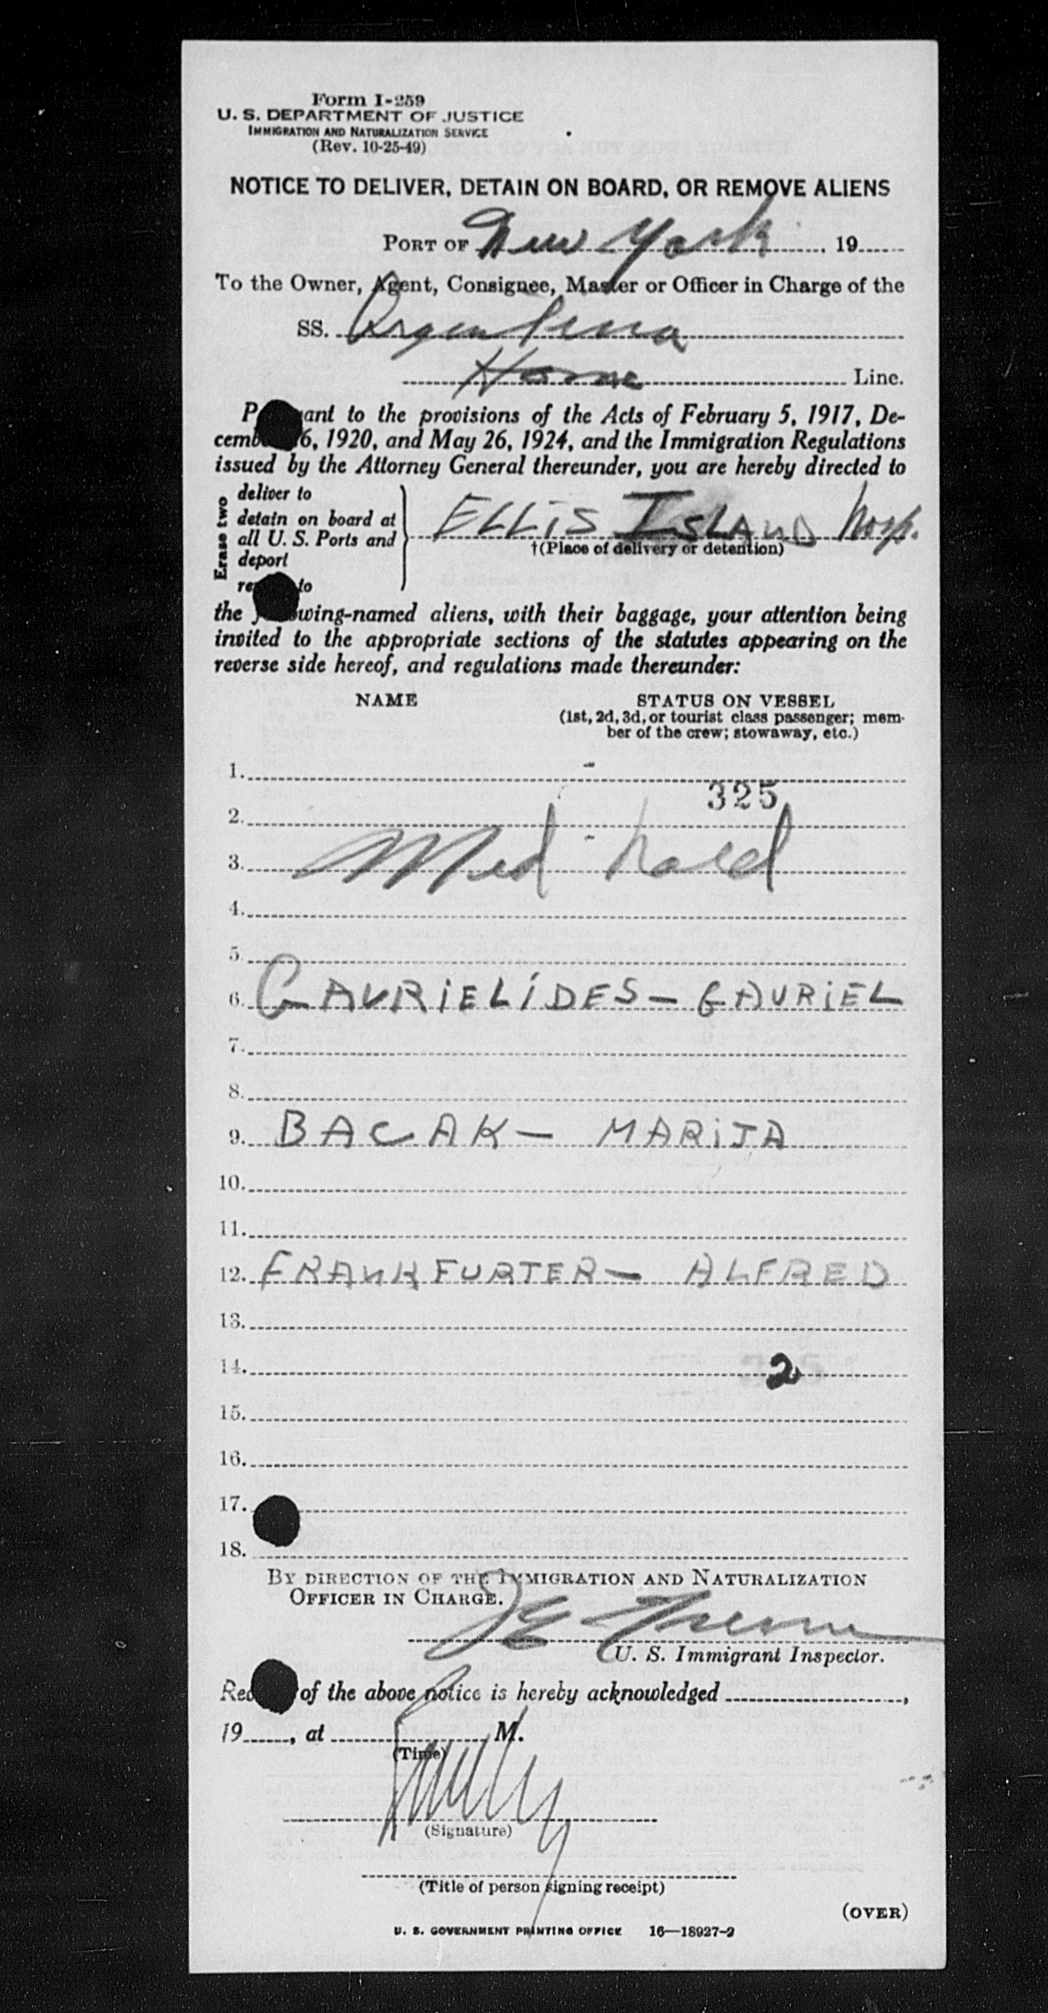 Form I-259
U. S. DEPARTMENT OF JUSTICE
IMMIGRATION AND NATURALIZATION SERVICE
(Rev. 10-25-49)
NOTICE TO DELIVER, DETAIN ON BOARD, OR REMOVE ALIENS
PORT OF New York, 19
To the Owner, Agent, Consignee, Master or Officer in Charge of the
SS. Argentina
Home Line.
to the provisions of the Acts of February 5, 1917, De-
6, 1920, and May 26, 1924, and the Immigration Regulations
issued by the Attorney General thereunder, you are hereby directed to
Erase two
deliver to
detain on board at
all U. S. Ports and
deport
to
ELLIS ISLAND hosp.
†(Place of delivery or detention)
the -named aliens, with their baggage, your attention being
invited to the appropriate sections of the statutes appearing on the
reverse side hereof, and regulations made thereunder:
NAME STATUS ON VESSEL
(1st, 2d, 3d, or tourist class passenger; mem-
ber of the crew; stowaway, etc.)
1.
325
2.
3. Med hold
4.
5.
6. GAVRIELIDES - GAVRIEL
7.
8.
9. BACAK - MARIJA
10.
11.
12. FRANKFURTER - ALFRED
13.
14. 2
15.
16.
17.
18.
BY DIRECTION OF THE IMMIGRATION AND NATURALIZATION
OFFICER IN CHARGE.
U. S. Immigrant Inspector.
of the above notice is hereby acknowledged ,
19 , at M.
(Time)
(Signature)
(Title of person signing receipt)
(OVER)
U. S. GOVERNMENT PRINTING OFFICE 16—18927-2